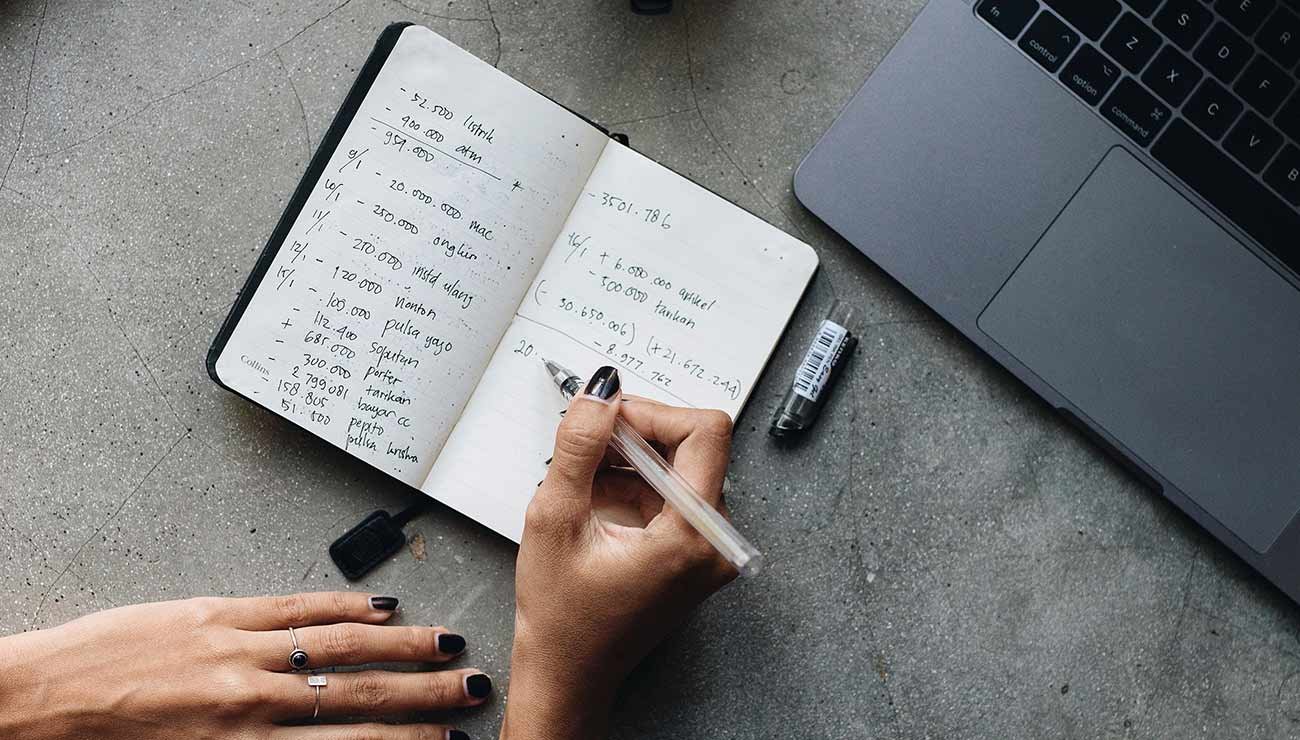 - 52.500 listrik
- 900.000 atm
- 959.000 *
9/1 - 20.000.000 mac
10/1 - 250.000 ongkir
11/1 - 210.000 instal ulang
12/1 - 120.000 nonton
15/1 - 100.000 pulsa yayo
- 112.400 soputan
+ 685.000 porter
- 300.000 tarikan
- 2.799.081 bayar cc
- 158.805 pepito
- 51.500 pulsa krisna
Collins
- 3501.786
16/1 + 6.000.000 artikel
- 500.000 tarikan
(- 30.650.006) (+21.672.244)
- 8.977.762
20.
fn
control
option
command
Z
X
C
V
B
S
D
F
E
R